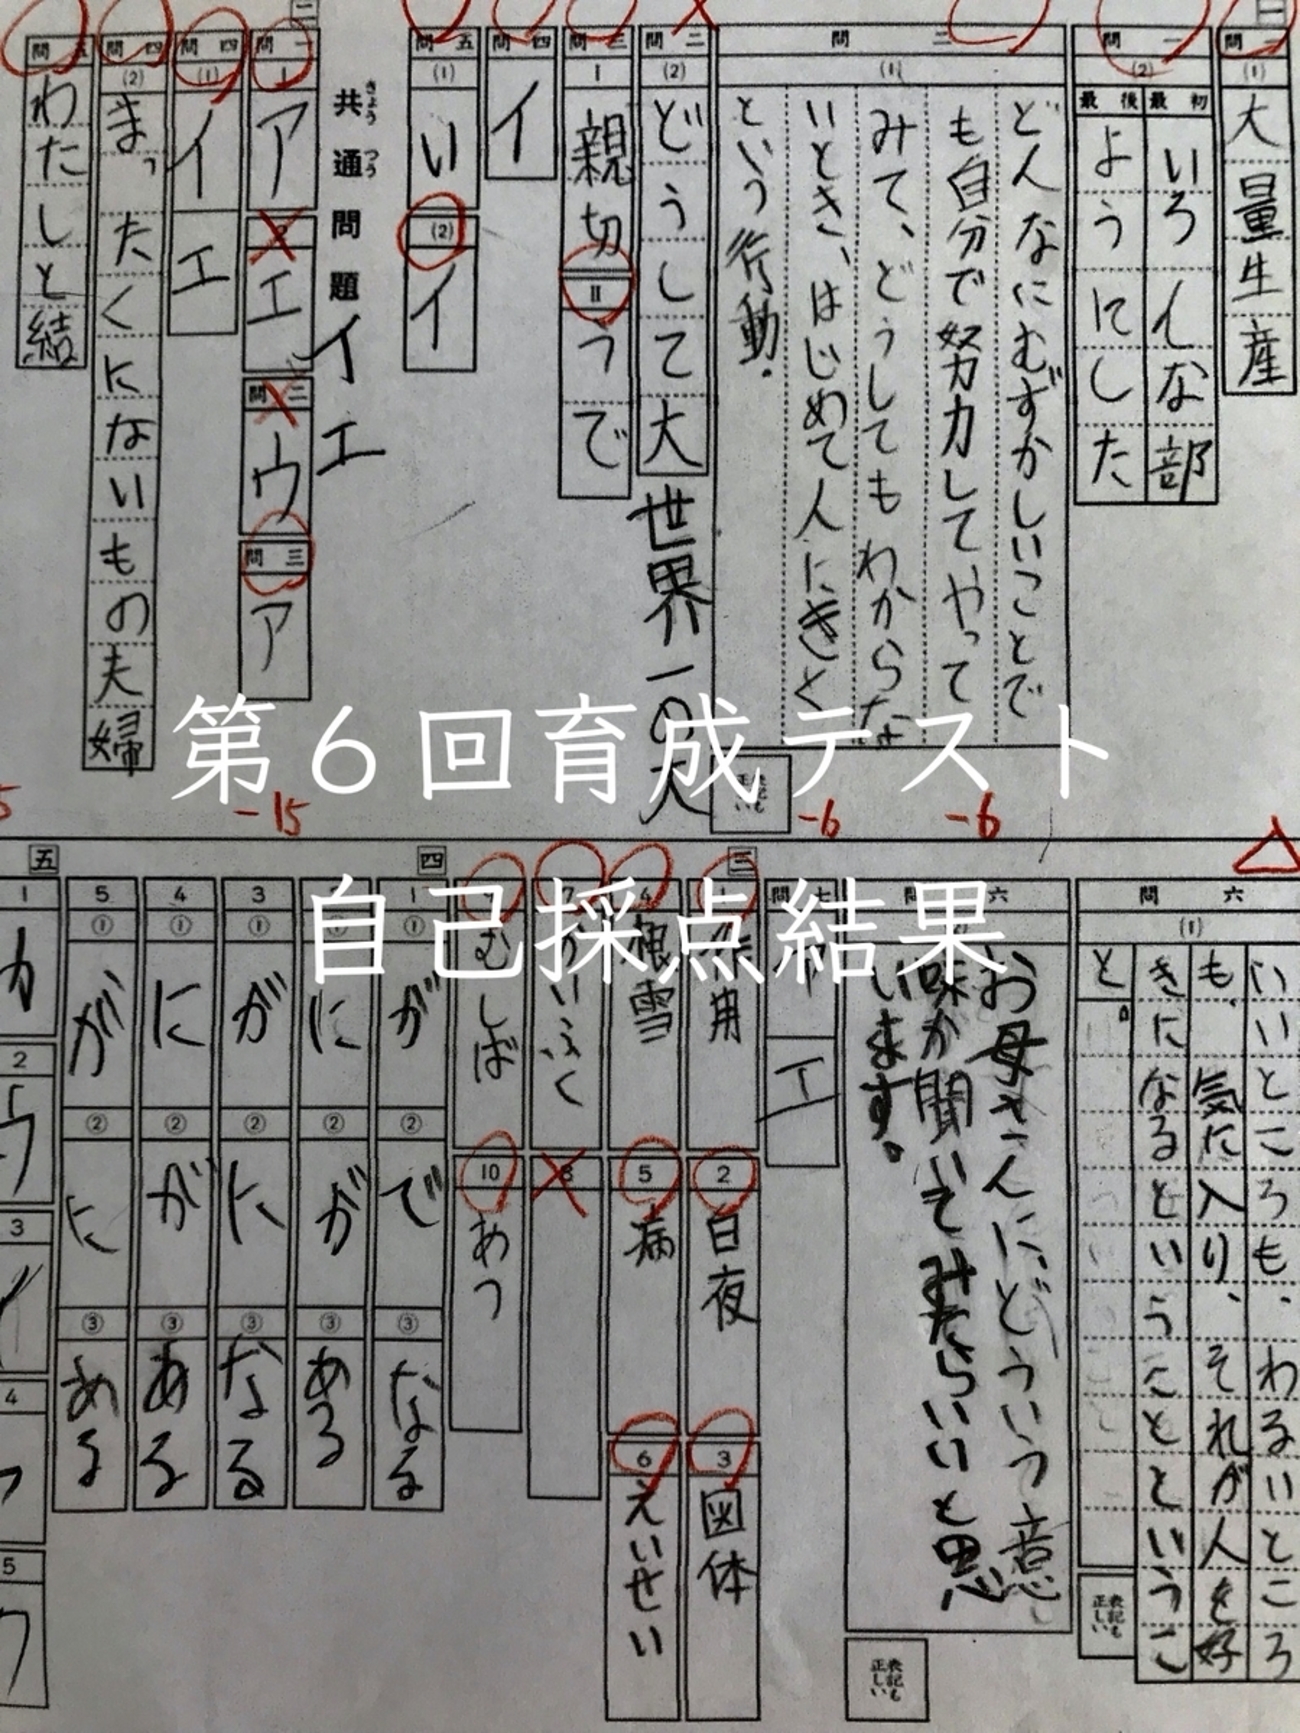 第６回育成テスト
自己採点結果
一
問一
(1)
大量生産
問一
(2)
最初
いろんな部
最後
ようにした
問二
(1)
どんなにむずかしいことで
も自分で努力してやって
みて、どうしてもわからな
いとき、はじめて人にきく
という行動.
表記も正しい
-6
-6
問二
(2)
どうして大
世界一の大
問三
I
親切
II
うで
問四
イ
問五
(1)
い
(2)
イ
二
共通問題
きょうつう
イエ
問一
1
ア
2
エ
問二
ウ
問三
ア
-15
問四
(1)
イ
エ
問四
(2)
まったくになないもの夫婦
問五
わたしと結
問六
(1)
いいところも、わるいところ
も、気に入り、それが人を好
きになるということというこ
と。
表記も正しい
問六
お母さんに、どういう意
味か聞いてみたらいいと思
います。
表記も正しい
問七
エ
三
1
作用
2
白夜
3
図体
4
根雪
5
病
6
えいせい
7
かいふく
8
9
むしば
10
あつ
四
1
①
が
②
で
③
なる
①
に
②
が
③
ある
3
①
が
②
に
③
なる
4
①
に
②
が
③
ある
5
①
が
②
に
③
ある
五
1
カ
2
ウ
3
イ
4
5